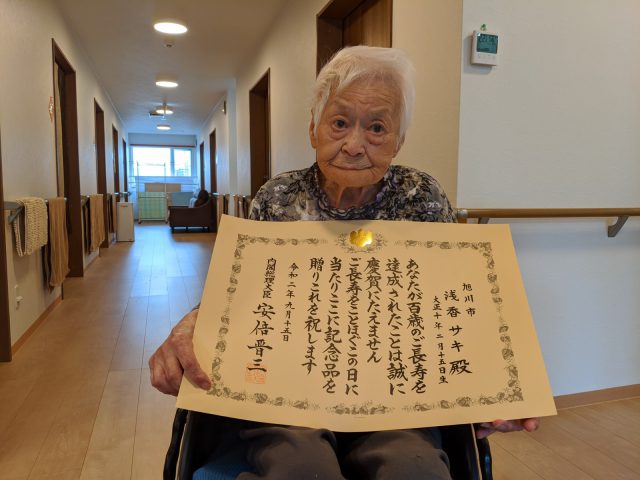 旭川市
浅香サキ殿
大正十年二月十五日生
あなたが百歳のご長寿を
達成されたことは誠に
慶賀にたえません
ご長寿をことほぐこの日に
当たりここに記念品を
贈りこれを祝します
令和二年九月十五日
内閣総理大臣 安倍晋三